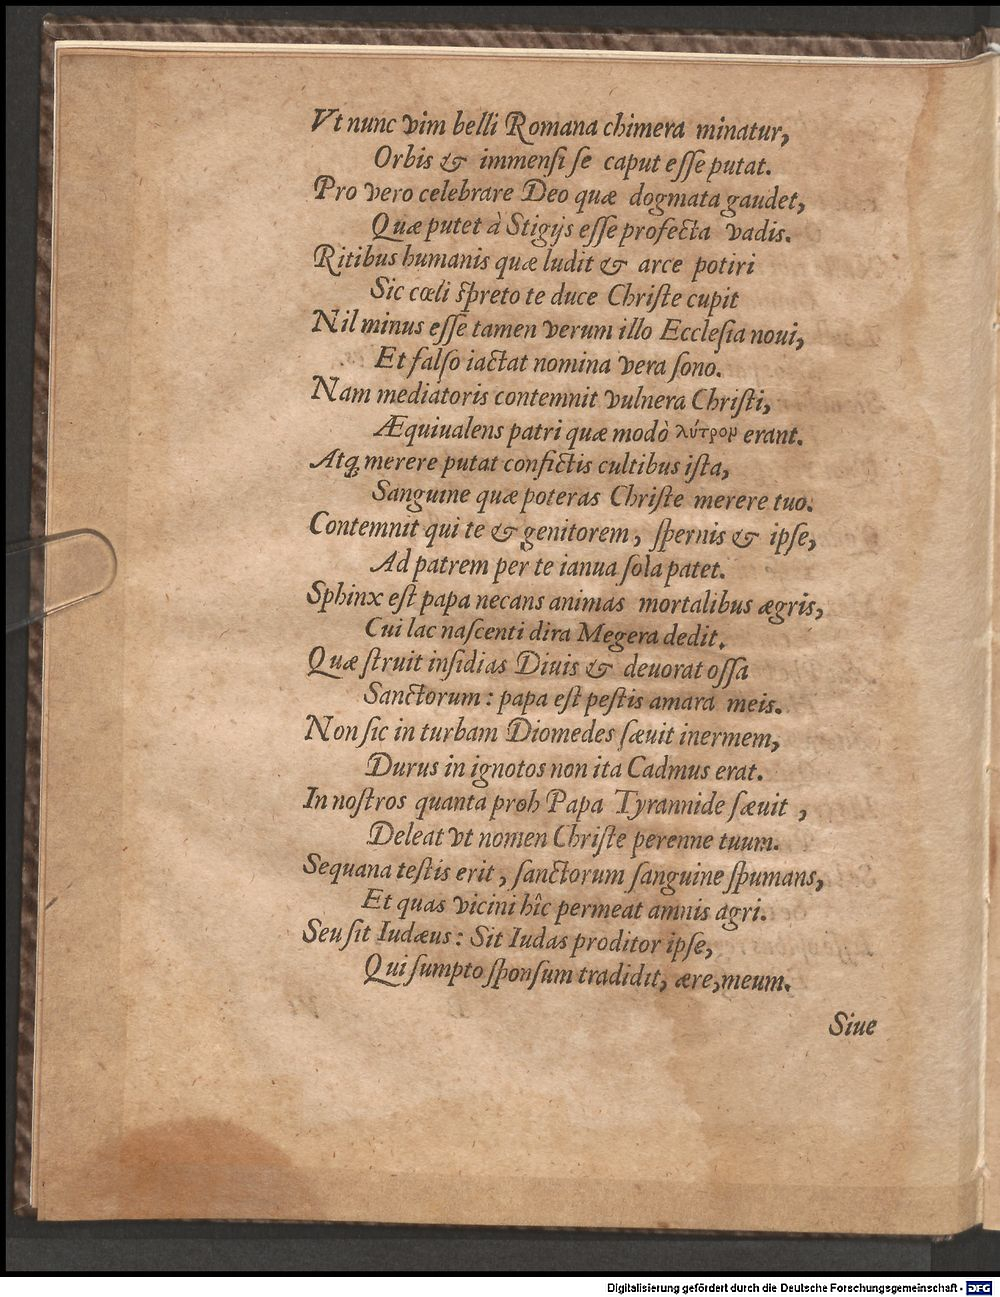 Vt nunc vim belli Romana chimera minatur,
Orbis & immensi se caput esse putat.
Pro vero celebrare Deo quæ dogmata gaudet,
Quæ putet à Stigijs esse profecta vadis.
Ritibus humanis quæ ludit & arce potiri
Sic cœli spreto te duce Christe cupit
Nil minus esse tamen verum illo Ecclesia noui,
Et falso iactat nomina vera sono.
Nam mediatoris contemnit vulnera Christi,
Æquiualens patri quæ modò λύτρομ erant.
Atq; merere putat confictis cultibus ista,
Sanguine quæ poteras Christe merere tuo.
Contemnit qui te & genitorem, spernis & ipse,
Ad patrem per te ianua sola patet.
Sphinx est papa necans animas mortalibus ægris,
Cui lac nascenti dira Megera dedit.
Quæ struit insidias Diuis & deuorat ossa
Sanctorum: papa est pestis amara meis.
Non sic in turbam Diomedes sæuit inermem,
Durus in ignotos non ita Cadmus erat.
In nostros quanta proh Papa Tyrannide sæuit,
Deleat vt nomen Christe perenne tuum.
Sequana testis erit, sanctorum sanguine spumans,
Et quas vicini hîc permeat amnis agri.
Seu sit Iudæus: Sit Iudas proditor ipse,
Qui sumpto sponsum tradidit, ære, meum.
Siue
Digitalisierung gefördert durch die Deutsche Forschungsgemeinschaft - DFG